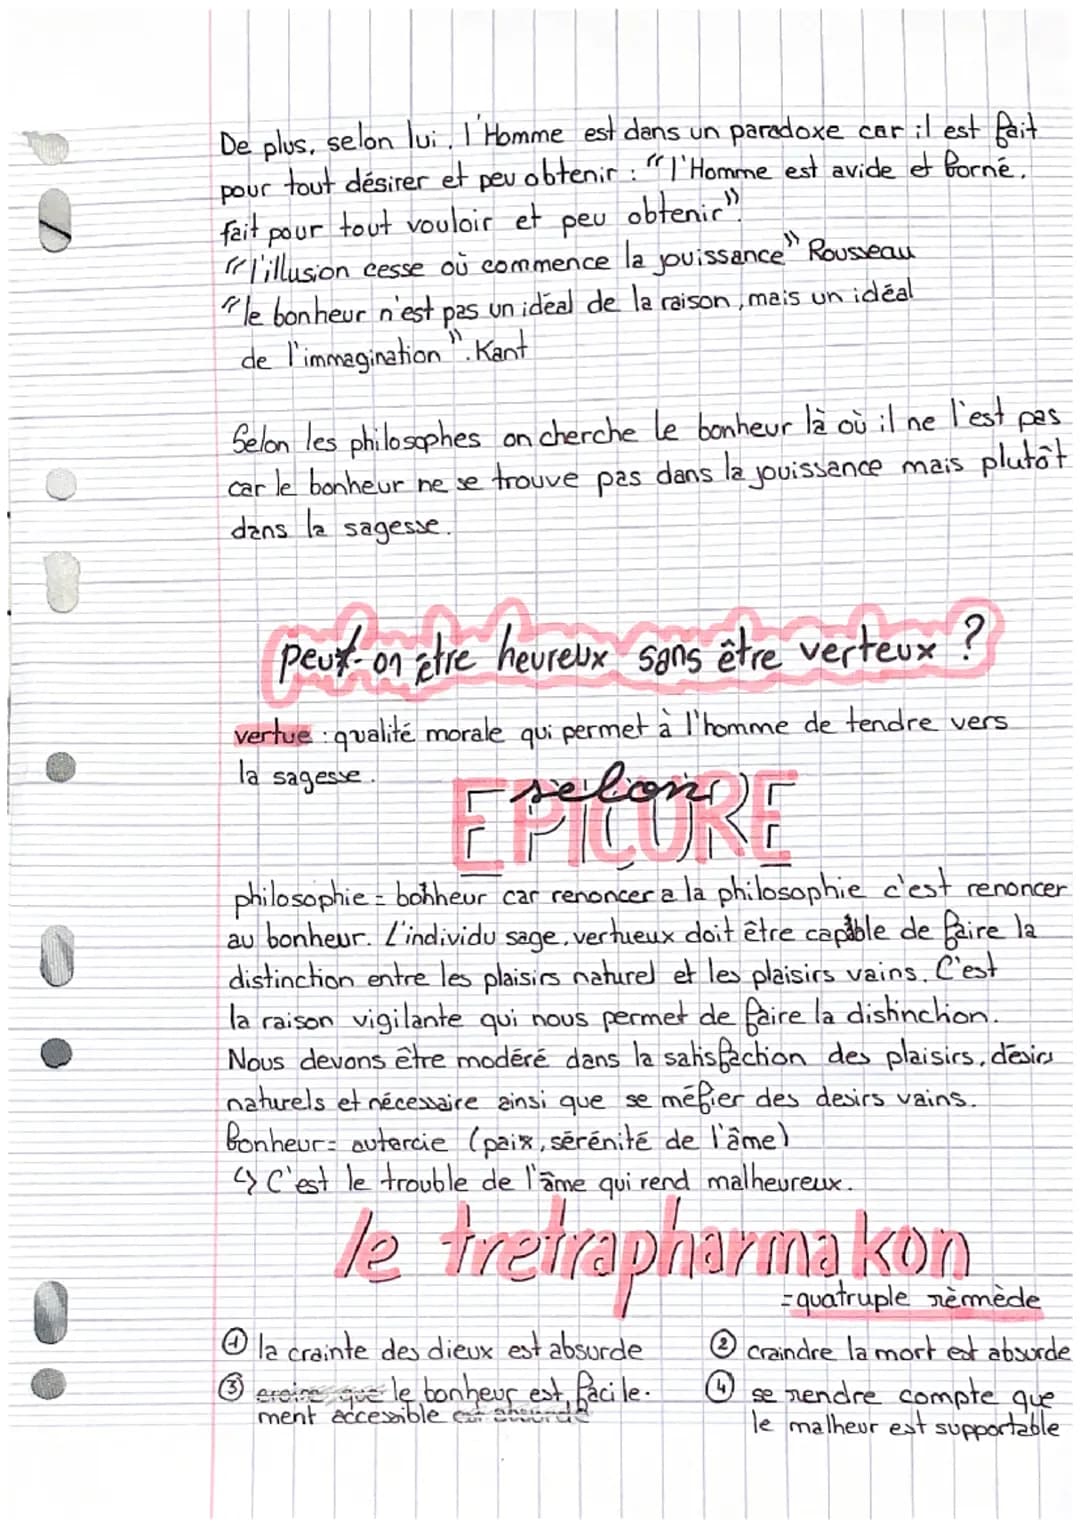 De plus, selon lui, l'Homme est dans un paradoxe car il est fait
pour tout désirer et peu obtenir : "l'Homme est avide et borné,
fait pour tout vouloir et peu obtenir".
"l'illusion cesse où commence la jouissance" Rousseau
"le bonheur n'est pas un idéal de la raison, mais un idéal
de l'immagination". Kant
Selon les philosophes on cherche le bonheur là où il ne l'est pas
car le bonheur ne se trouve pas dans la jouissance mais plutôt
dans la sagesse.
peut-on être heureux sans être verteux ?
vertue : qualité morale qui permet à l'homme de tendre vers
la sagesse.
selon
EPICURE
philosophie = bonheur car renoncer a la philosophie c'est renoncer
au bonheur. L'individu sage, vertueux doit être capable de faire la
distinction entre les plaisirs naturel et les plaisirs vains. C'est
la raison vigilante qui nous permet de faire la distinction.
Nous devons être modéré dans la satisfaction des plaisirs, désirs
naturels et nécessaire ainsi que se méfier des desirs vains.
Bonheur = autarcie (paix, sérénité de l'âme)
↳ C'est le trouble de l'âme qui rend malheureux.
le tretrapharmakon
= quatruple rèmède
① la crainte des dieux est absurde
② craindre la mort est absurde
③ croire que le bonheur est facile-
ment accessible est absurde
④ se rendre compte que
le malheur est supportable